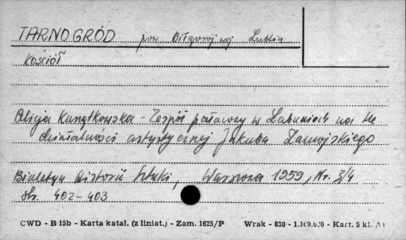 TARNOGRÓD pow. Biłgoraj woj. Lublin
Kościół
Aligia Kunątkowska - Zespół pałacowy w Łabuniach na tle
działalności artystycznej Jakuba Zamojskiego
Biuletyn Historii Sztuki, Warszawa 1959, Nr. 3/4
Str. 402-403
CWD - B 15b - Karta katal. (z liniat.) - Zam. 1625/P Wrak - 830 - Kart. 5 kl.